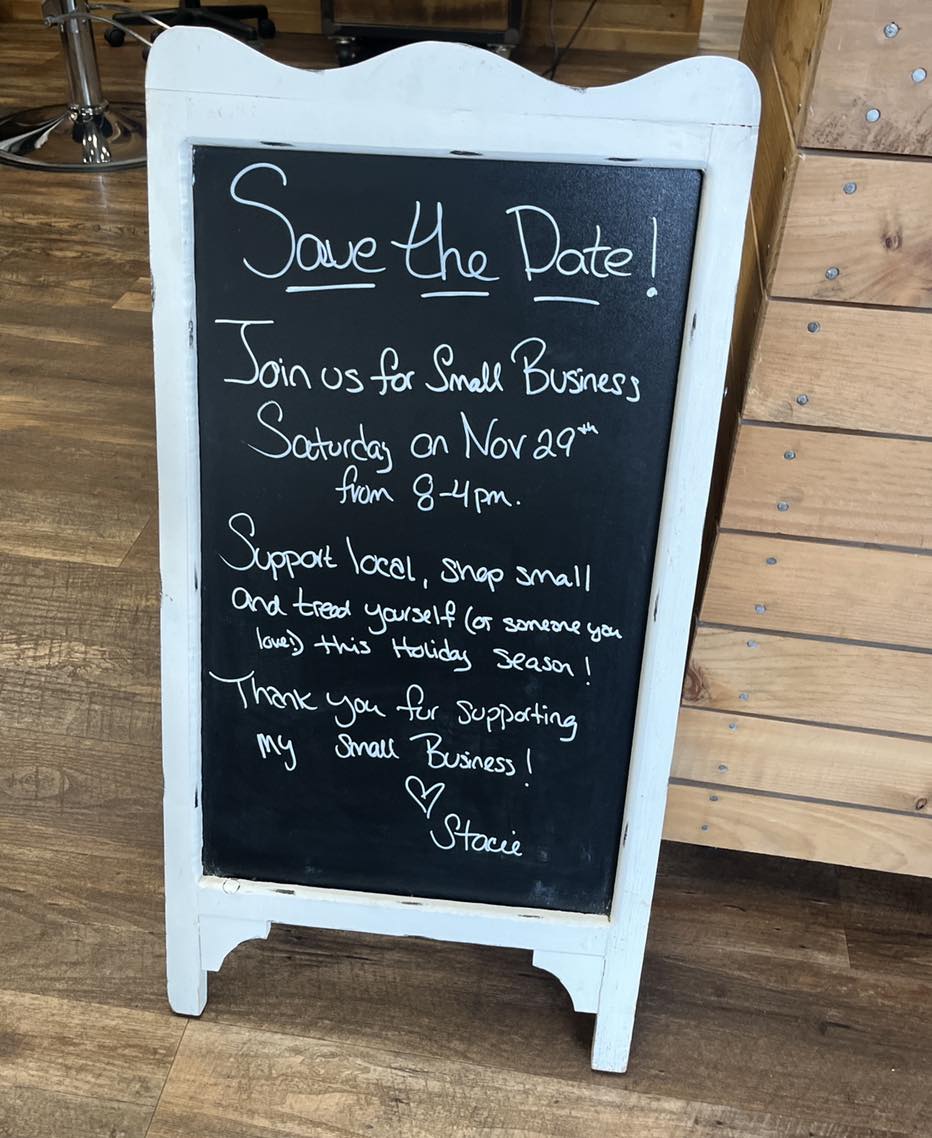 Save the Date!
Join us for Small Business
Saturday on Nov 29th
from 8-4pm.
Support local, shop small
and treat yourself (or someone you
love!) this Holiday Season!
Thank you for supporting
my Small Business!
♡
Stacie